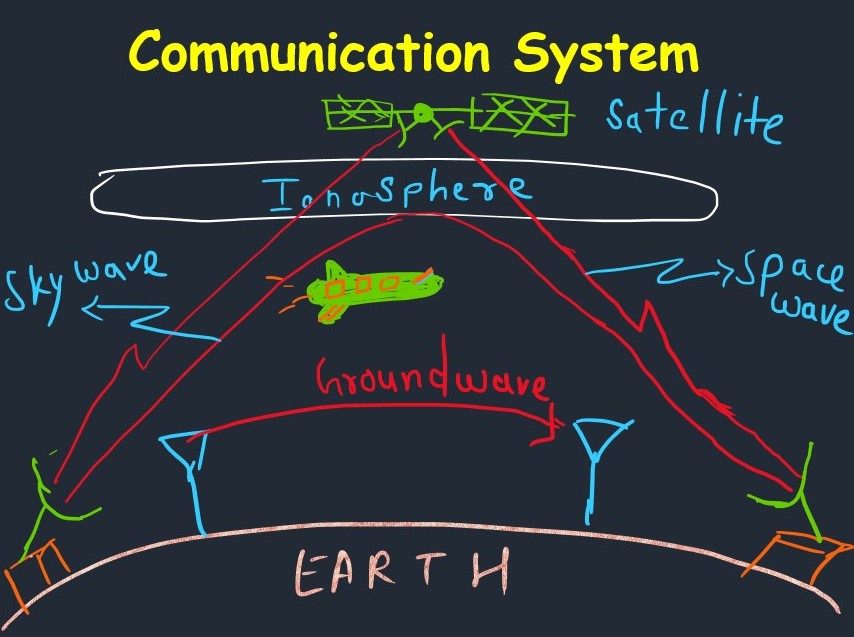 Communication System
Satellite
Ionosphere
Sky wave
Space
wave
Groundwave
EARTH